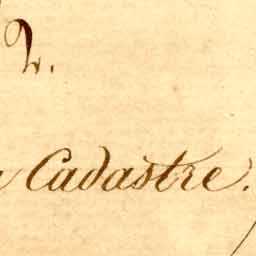 2.
Cadastre.